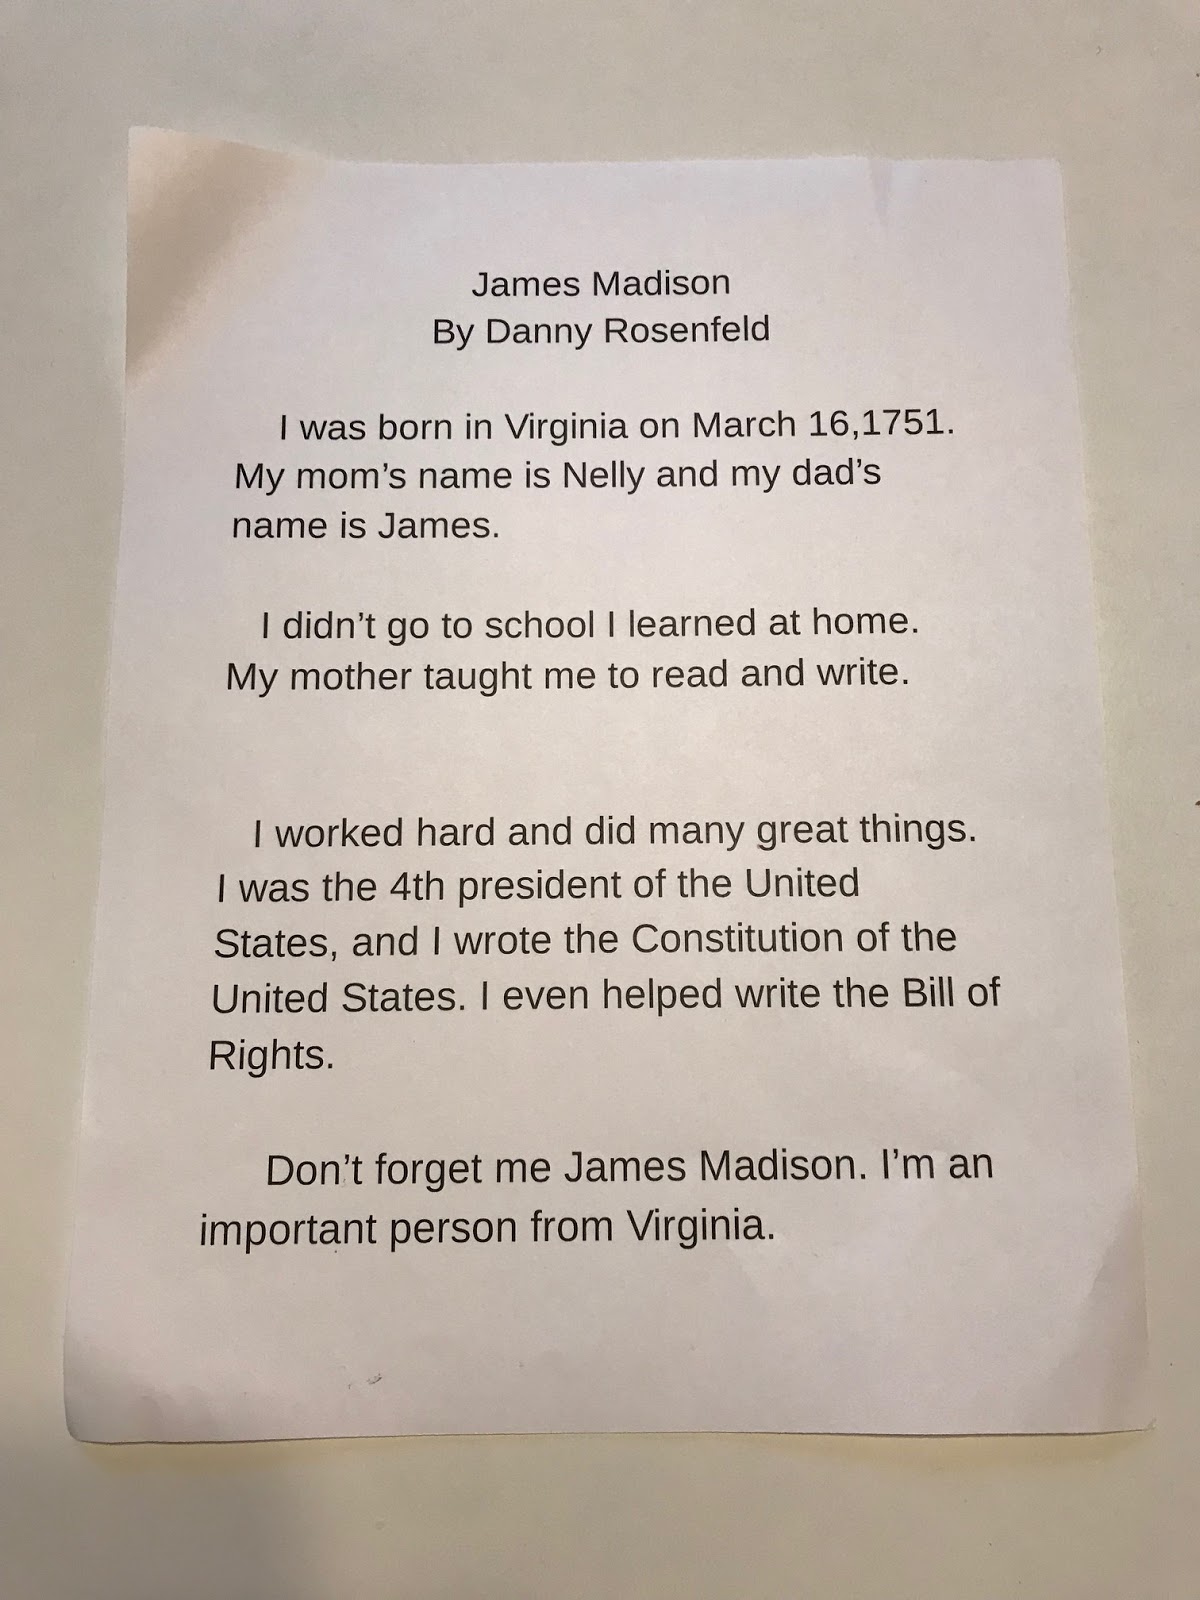 James Madison
By Danny Rosenfeld
I was born in Virginia on March 16,1751.
My mom’s name is Nelly and my dad’s
name is James.
I didn’t go to school I learned at home.
My mother taught me to read and write.
I worked hard and did many great things.
I was the 4th president of the United
States, and I wrote the Constitution of the
United States. I even helped write the Bill of
Rights.
Don’t forget me James Madison. I’m an
important person from Virginia.